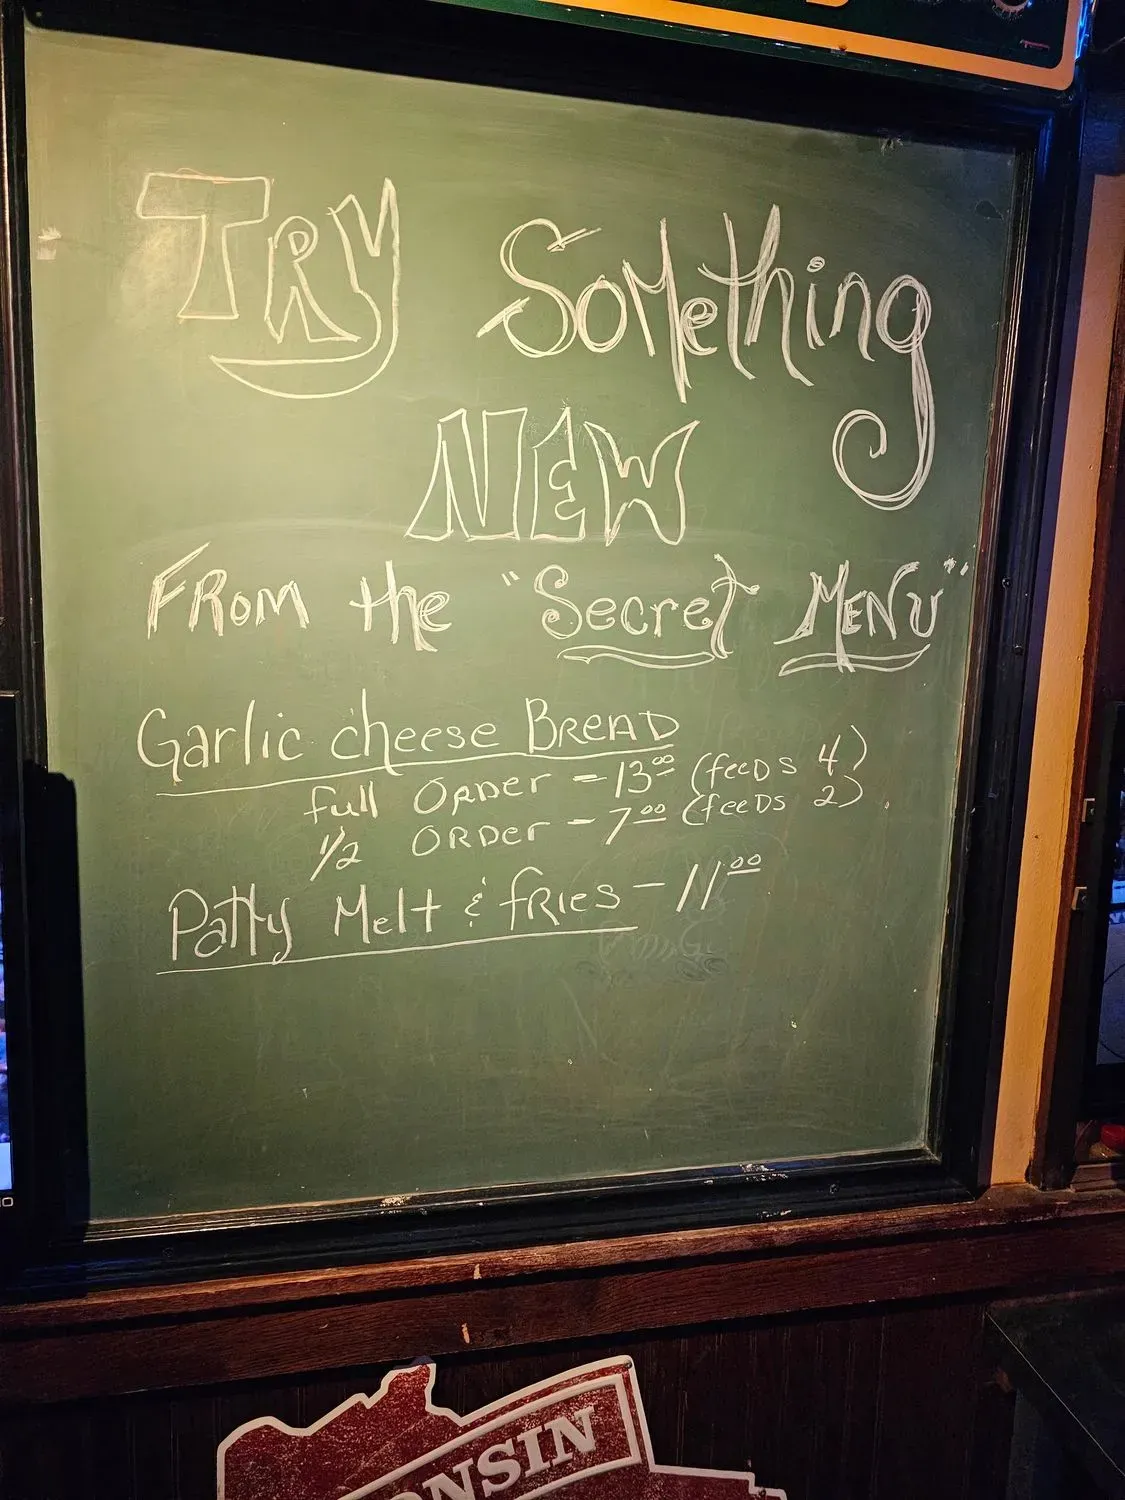 TRY Something
NEW
FROM the "Secret MENU"
Garlic cheese BREAD
full ORDer - 13.00 (feeDs 4)
1/2 ORDer - 7.00 (feeDs 2)
Patty Melt & fRies - 11.00
NSIN